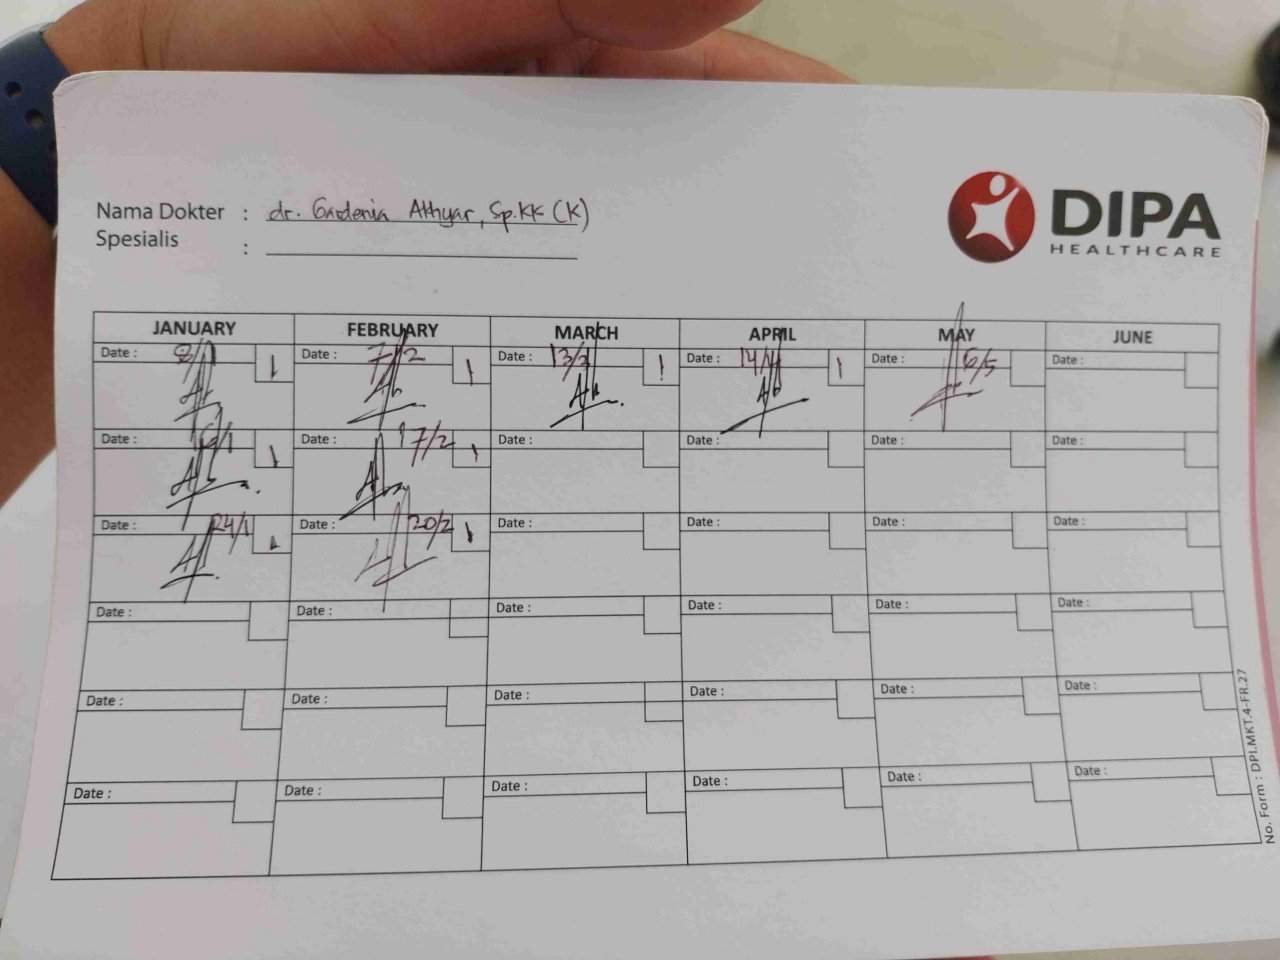 Nama Dokter : dr. Gardenia Athyar, Sp.KK (K)
Spesialis :
DIPA
HEALTHCARE
JANUARY FEBRUARY MARCH APRIL MAY JUNE
Date : 8/1 1 Date : 7/2 1 Date : 13/3 1 Date : 14/4 1 Date : 6/5 Date :
Date : 1 Date : 17/2 1 Date : Date : Date : Date :
Date : 24/1 1 Date : 20/2 1 Date : Date : Date : Date :
Date : Date : Date : Date : Date : Date :
Date : Date : Date : Date : Date : Date :
Date : Date : Date : Date : Date : Date :
No. Form : DPI.MKT.4-FR.27